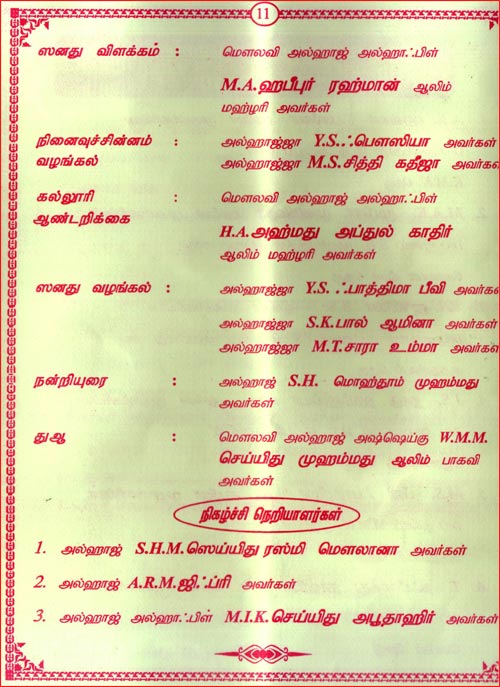 11
ஸனது விளக்கம் : மௌலவி அல்ஹாஜ் அல்ஹாஃபிள்
M.A.ஹபீபுர் ரஹ்மான் ஆலிம்
மஹ்ழரி அவர்கள்
நினைவுச்சின்னம் : அல்ஹாஜ்ஜா Y.S.ஃபௌஸியா அவர்கள்
வழங்கல் அல்ஹாஜ்ஜா M.S.சித்தி கதீஜா அவர்க
கல்லூரி : மௌலவி அல்ஹாஜ் அல்ஹாஃபிள்
ஆண்டறிக்கை
H.A.அஹ்மது அப்துல் காதிர்
ஆலிம் மஹ்ழரி அவர்கள்
ஸனது வழங்கல் : அல்ஹாஜ்ஜா Y.S.ஃபாத்திமா பீவி அவர்க
அல்ஹாஜ்ஜா S.K.பால் ஆமினா அவர்கள்
அல்ஹாஜ்ஜா M.T.சாரா உம்மா அவர்கள்
நன்றியுரை : அல்ஹாஜ் S.H. மொஹ்தூம் முஹம்மது
அவர்கள்
துஆ : மௌலவி அல்ஹாஜ் அஷ்ஷெய்கு W.M.M.
செய்யிது முஹம்மது ஆலிம் பாகவி
அவர்கள்
நிகழ்ச்சி நெறியாளர்கள்
1. அல்ஹாஜ் S.H.M.ஸெய்யிது ரஸ்மி மௌலானா அவர்கள்
2. அல்ஹாஜ் A.R.M.ஜிஃப்ரி அவர்கள்
3. அல்ஹாஜ் அல்ஹாஃபிள் M.I.K.செய்யிது அபூதாஹிர் அவர்கள்